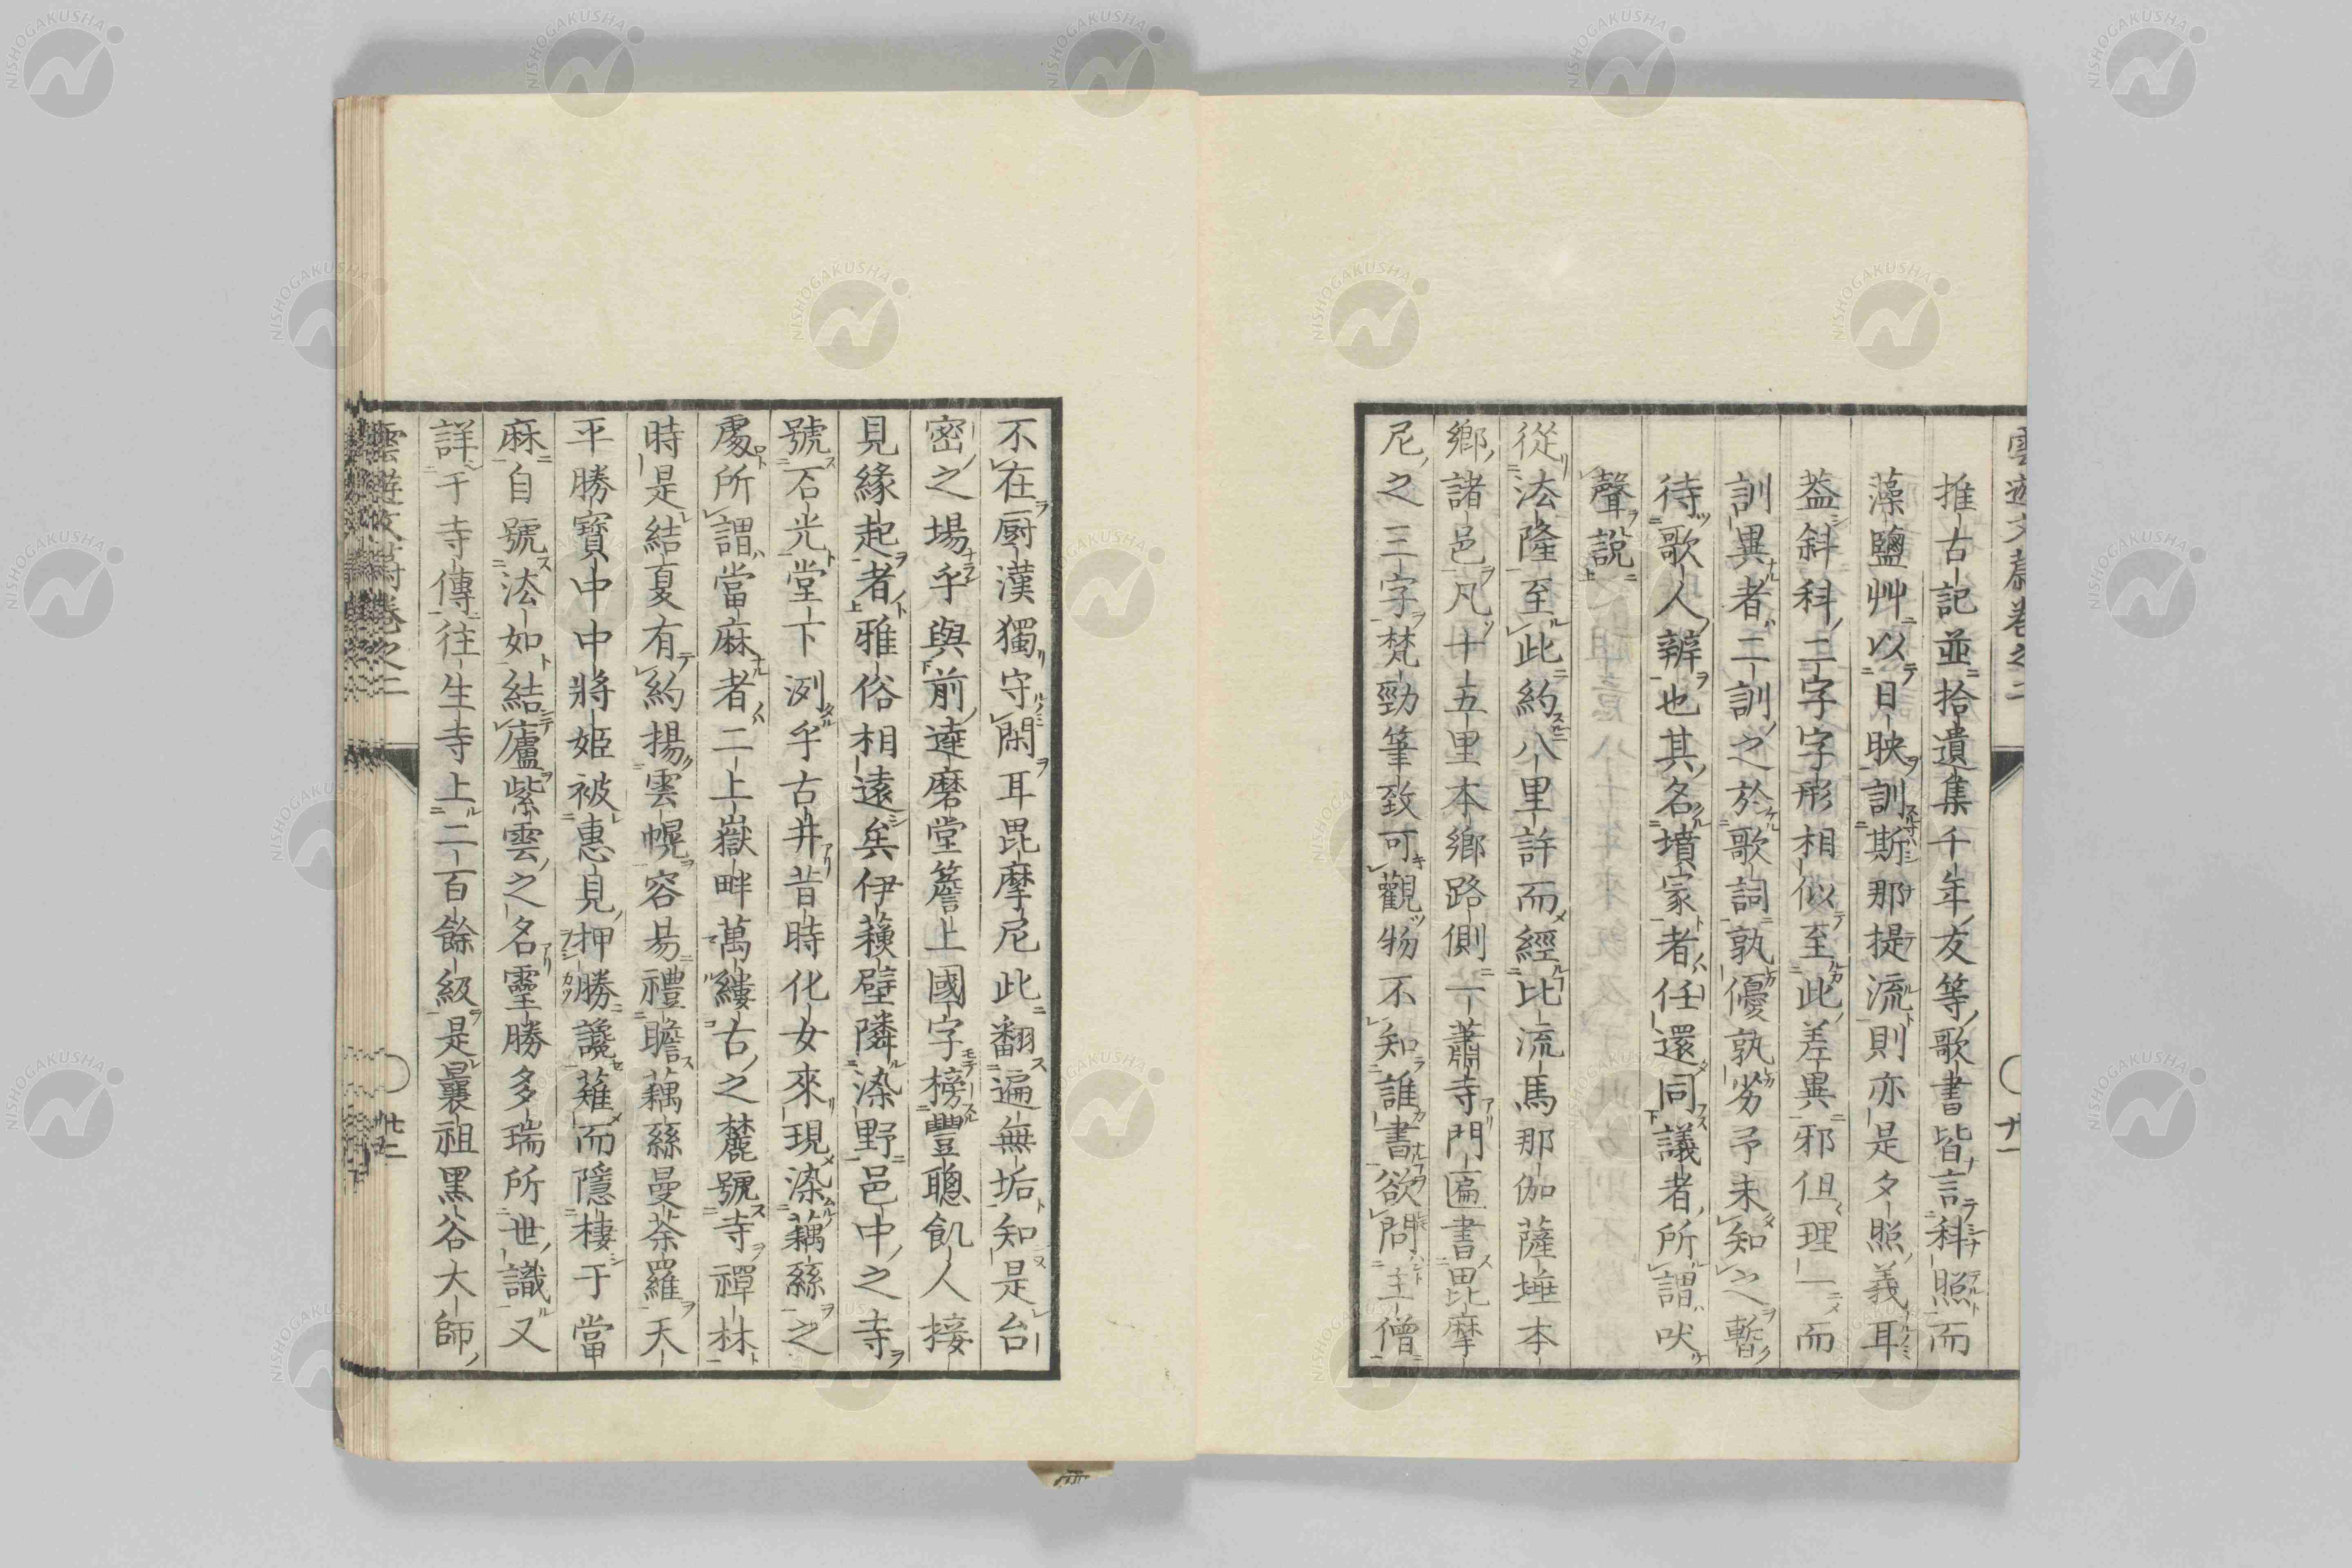 推古記並拾遺集千年友等歌書皆言科照而
藻鹽艸以日映訓斯那提流則亦是夕照義耳
葢斜科二字字形相似至此差異邪但理一而
訓異者二訓之於歌詞孰優孰劣予未知之暫
待歌人辨也其名墳家者任還同議者所謂吠
聲說
從法隆至此約八里許而經比流馬那伽薩埵本
鄉諸邑凡十五里本鄉路側一蕭寺門匾書毘摩
尼之三字梵勁筆致可觀物不知誰書欲問主僧
不在厨漢獨守閑耳毘摩尼此翻遍無垢知是台
密之場乎與前達磨堂簷上國字榜豐聰飢人接
見緣起者雅俗相遠矣伊蘋壁隣染野邑中之寺
號石光堂下洌乎古井昔時化女來現染藕絲之
處所謂當麻者二上嶽畔萬縷古之麓號寺禪林
時是結夏有約揚雲幌容易禮瞻藕絲曼荼羅天
平勝寶中中將姬被惠見押勝讒薙而隱棲于當
麻自號法如結廬紫雲之名靈勝多瑞所世識又
詳于寺傳往生寺上二百餘級是曩祖黑谷大師
雲遊文蔚卷之二
NISHOGAKUSHA